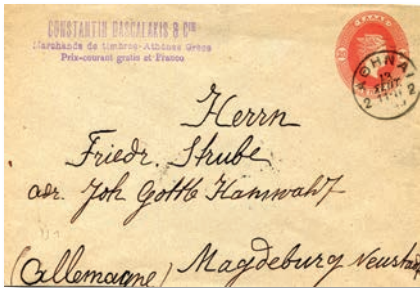 CONSTANTIN DASCALAKIS & Cie
Marchands de timbres-Athènes Grèce
Prix-courant gratis et Franco
ΑΘΗΝΑ
13
2 2
Herrn
Friedr. Strube
adr. Joh Gottlb Hamwaldt
(Allemagne) Magdeburg Neustadt